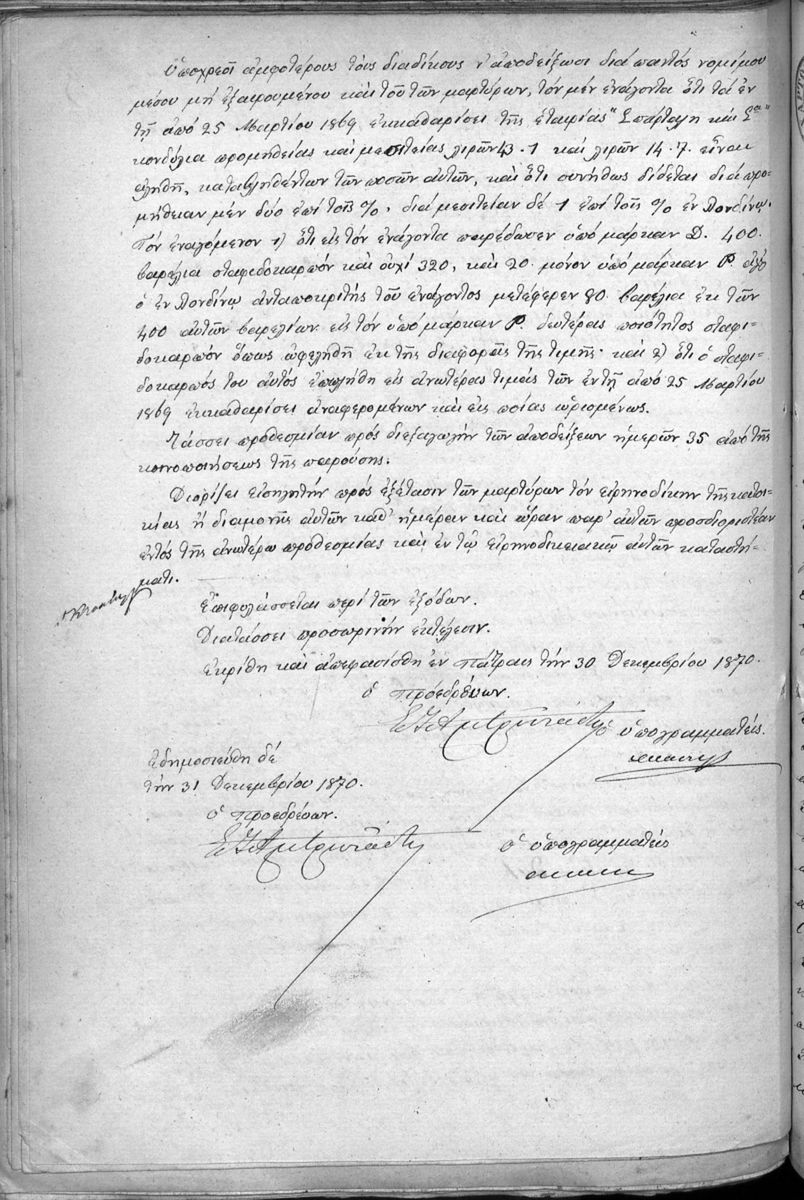 Ὑποχρεοῖ ἀμφοτέρους τοὺς διαδίκους ν' ἀποδείξωσι διὰ παντὸς νομίμου
μέσου μὴ ἐξαιρουμένου καὶ τοῦ τῶν μαρτύρων, τὸν μὲν ἐνάγοντα ὅτι τὰ ἐν
τῇ ἀπὸ 25 Μαρτίου 1869 ἐκκαθαρίσει τῆς ἑταιρίας "Σπάρταλη καὶ Σα"
κονδύλια προμηθείας καὶ μεσιτείας λιρῶν 43.1 καὶ λιρῶν 14.7. εἶναι
ἀληθῆ, καταβληθέντων τῶν ποσῶν αὐτῶν, καὶ ὅτι συνήθως δίδεται διὰ προ-
μήθειαν μὲν δύο ἐπὶ τοῖς %, διὰ μεσιτείαν δὲ 1 ἐπὶ τοῖς % ἐν Λονδίνῳ.
Τὸν ἐναγόμενον 1) ὅτι εἰς τὸν ἐνάγοντα παρέδωσεν ὑπὸ μάρκαν D. 400.
βαρέλια σταφιδοκαρπὸν καὶ οὐχὶ 320, καὶ 20 μόνον ὑπὸ μάρκαν P.
ὁ ἐν Λονδίνῳ ἀνταποκριτὴς τοῦ ἐνάγοντος μετέφερεν 80 βαρέλια ἐκ τῶν
400 αὐτῶν βαρελίων εἰς τὸν ὑπὸ μάρκαν P. δευτέρας ποιότητος σταφι-
δοκαρπὸν ὅπως ὠφεληθῇ ἐκ τῆς διαφορᾶς τῆς τιμῆς· καὶ 2) ὅτι ὁ σταφι-
δοκαρπός του αὐτὸς ἐπωλήθη εἰς ἀνωτέρας τιμὰς τῶν ἐν τῇ ἀπὸ 25 Μαρτίου
1869 ἐκκαθαρίσει ἀναφερομένων καὶ εἰς ποίας ὡρισμένως.
Τάσσει προθεσμίαν πρὸς διεξαγωγὴν τῶν ἀποδείξεων ἡμερῶν 35 ἀπὸ τῆς
κοινοποιήσεως τῆς παρούσης.
Διορίζει εἰσηγητὴν πρὸς ἐξέτασιν τῶν μαρτύρων τὸν εἰρηνοδίκην τῆς κατοι-
κίας ἢ διαμονῆς αὐτῶν καθ' ἡμέραν καὶ ὥραν παρ' αὐτῶν προσδιοριστέαν
ἐντὸς τῆς ἀνωτέρω προθεσμίας καὶ ἐν τῷ εἰρηνοδικειακῷ αὐτῶν καταστή-
ματι.
Ἐπιφυλάσσεται περὶ τῶν ἐξόδων.
Διατάσσει προσωρινὴν ἐκτέλεσιν.
Ἐκρίθη καὶ ἀπεφασίσθη ἐν Πάτραις τὴν 30 Δεκεμβρίου 1870.
Ὁ προεδρεύων.
Ὁ ὑπογραμματεύς.
Ἐδημοσιεύθη δὲ
τὴν 31 Δεκεμβρίου 1870.
Ὁ προεδρεύων.
Ὁ ὑπογραμματεύς